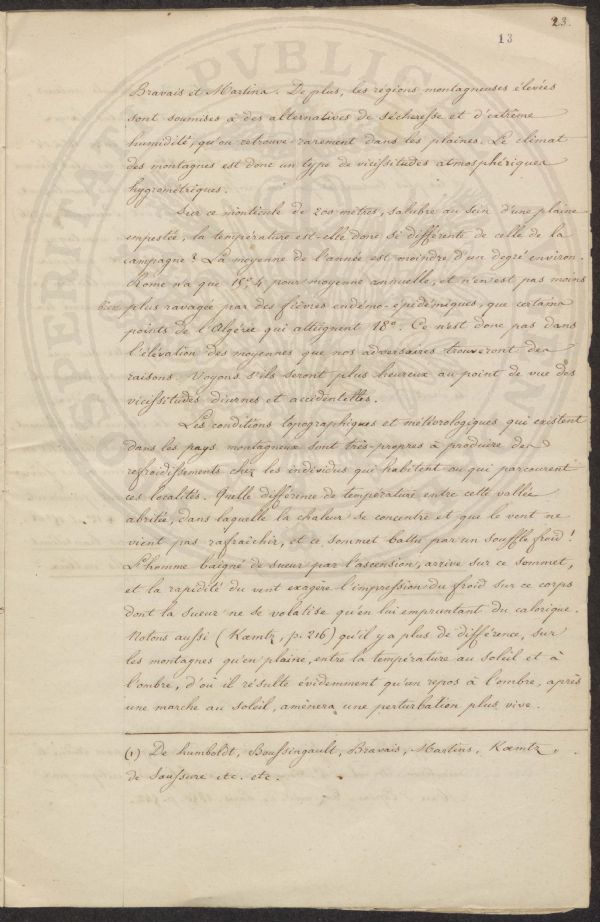 23.
13
Bravais et Martins. De plus, les régions montagneuses élevées
sont soumises à des alternatives de sécheresse et d'extrême
humidité, qu'on retrouve rarement dans les plaines. Le climat
des montagnes est donc un type de vicissitudes atmosphériques
hygrométriques.
Sur ce monticule de 200 mètres, salubre au sein d'une plaine
empestée, la température est-elle donc si différente de celle de la
campagne? La moyenne de l'année est moindre d'un degré environ.
Rome n'a que 15°4, pour moyenne annuelle, et n'en est pas moins
bien plus ravagée par des fièvres endémo-épidémiques, que certains
points de l'Algérie qui atteignent 18°. Ce n'est donc pas dans
l'élévation des moyennes que nos adversaires trouveront des
raisons. Voyons s'ils seront plus heureux au point de vue des
vicissitudes diurnes et accidentelles.
Les conditions topographiques et météorologiques qui existent
dans les pays montagneux sont très-propres à produire des
refroidissements chez les individus qui habitent ou qui parcourent
ces localités. Quelle différence de température entre cette vallée
abritée, dans laquelle la chaleur se concentre et que le vent ne
vient pas rafraîchir, et ce sommet battu par un souffle froid!
L'homme baigné de sueur par l'ascension, arrive sur ce sommet,
et la rapidité du vent exagère l'impression du froid sur ce corps
dont la sueur ne se volatise qu'en lui empruntant du calorique.
Notons aussi (Kæmtz, p. 216) qu'il y a plus de différence, sur
les montagnes qu'en plaine, entre la température au soleil et à
l'ombre, d'où il résulte évidemment qu'un repos à l'ombre, après
une marche au soleil, amènera une perturbation plus vive.
(1) De humboldt, Boussingault, Bravais, Martins, Kæmtz,
de Saussure etc. etc.